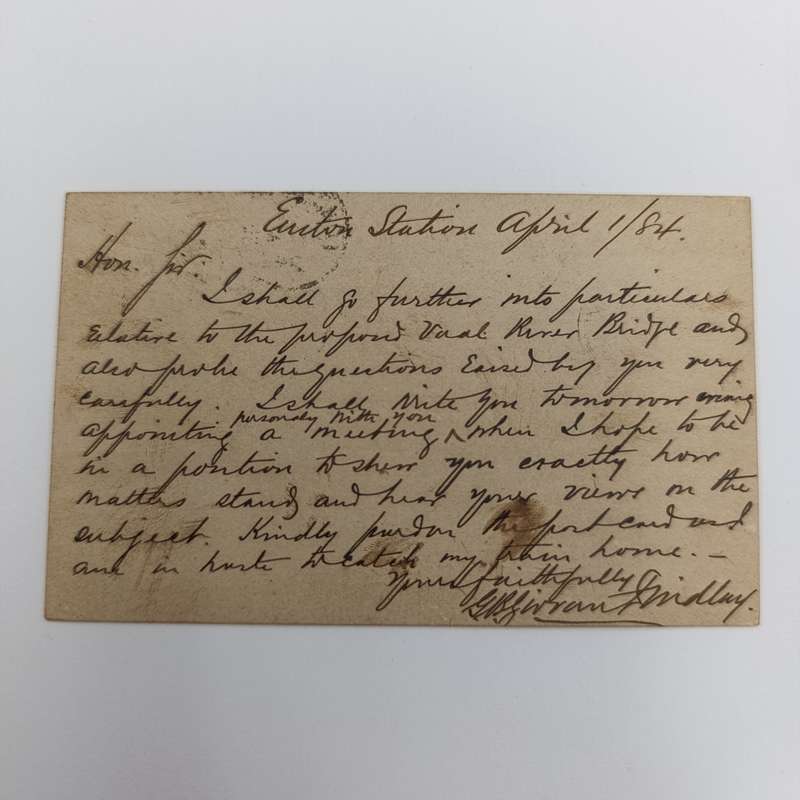 Euston Station April 1/84.
Hon. Sir.
I shall go further into particulars
relative to the proposed Vaal River Bridge and
also probe the questions raised by you very
carefully. I shall write you tomorrow evening
personally with you
appointing a meeting ^ when I hope to be
in a position to shew you exactly how
matters stand and hear your views on the
subject. Kindly pardon the post card as I
am in haste to catch my train home. –
Yours faithfully
Findlay.